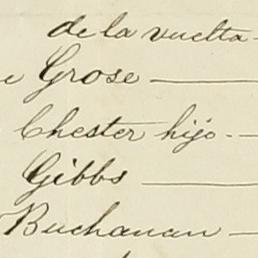 de la vuelta
Grose
Chester hijo.
Gibbs
Buchanan